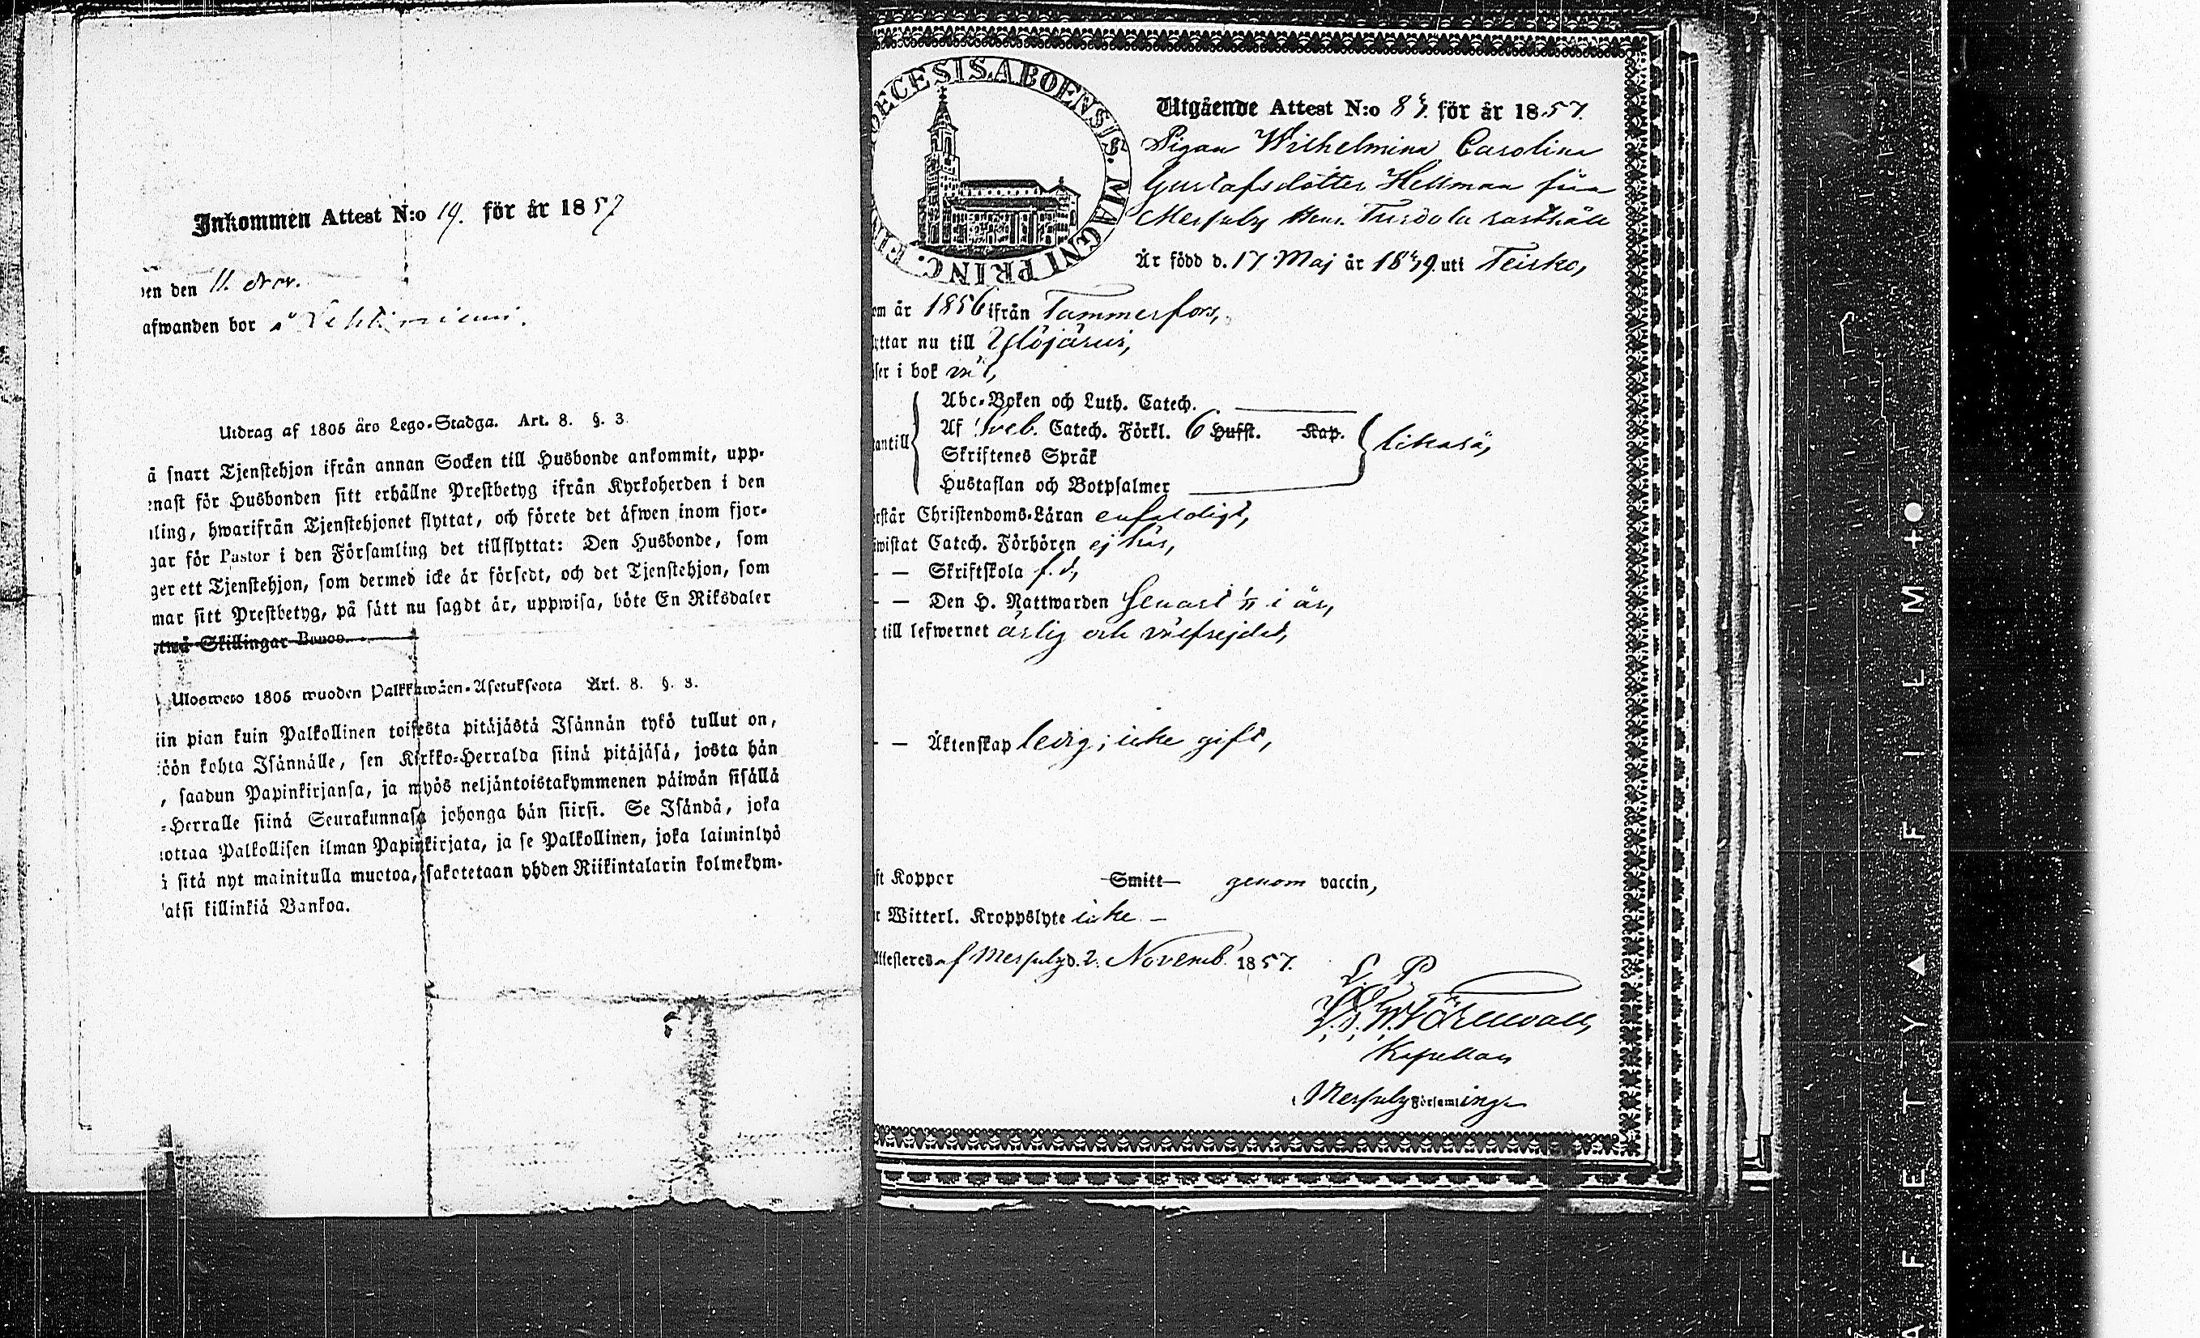 Inkommen Attest N:o 19. för år 1857
en den 11. Nov.
afwanden bor å Lehtiniemi.
Utdrag af 1805 års Lego-Stadga. Art. 8. §. 3.
å snart Tjenstehjon ifrån annan Socken till Husbonde ankommit, upp-
nast för Husbonden sitt erhållne Prestbetyg ifrån Kyrkoherden i den
ling, hwarifrån Tjenstehjonet flyttat, och förete det äfwen inom fjor-
gar för Pastor i den Församling det tillflyttat: Den Husbonde, som
ger ett Tjenstehjon, som dermed icke är försedt, och det Tjenstehjon, som
mar sitt Prestbetyg, på sätt nu sagdt är, uppwisa, böte En Riksdaler
ttwå Skillingar Banco.
Uloswето 1805 wuoden Palkkawäen-Asetuksesta Art. 8. §. 3.
iin pian kuin Palkollinen toisesta pitäjästä Isännän tykö tullut on,
öön kohta Isännälle, sen Kirkko-Herralda siinä pitäjäsä, josta hän
, saadun Papinkirjansa, ja myös neljäntoistakymmenen päiwän sisällä
-Herralle siinä Seurakunnasa johonga hän siirsi. Se Isändä, joka
ottaa Palkollisen ilman Papinkirjata, ja se Palkollinen, joka laiminlyö
i sitä nyt mainitulla muotoa, sakotetaan yhden Riikintalarin kolmekym-
atsi killinkiä Bankoa.
DECESIS. ABOENSIS. MAGNI PRINC. FIN
Utgående Attest N:o för år 1857.
Pigan Wilhelmina Carolina
Gustafsdotter Hellman från
Messuby Hem. Turdola rusthåll
Är född d. 17 Maj år 1839 uti Teisko,
om år 1856 ifrån Tammerfors,
yttar nu till Ylöjärvi,
ser i bok väl,
Abc-Boken och Luth. Catech.
antill Af Sveb. Catech. Förkl. 6 Hufst. Kap. likaså,
Skriftenes Språk
Hustaflan och Botpsalmer
rstår Christendoms-Läran enfaldigt,
wistat Catech. Förhören ej här,
— — Skriftskola f. d,
— — Den H. Nattwarden senast i år,
till lefwernet ärlig och välfrejdad,
— — Äktenskap ledig; icke gift,
ft Koppor Smitt genom vaccin,
r Witterl. Kroppslyte icke —
Attesteras af Messuby d. 2. Novemb. 1857.
L. P.
Kapellan
i Messuby Församling.
S A F E T Y ▲ F I L M + ●